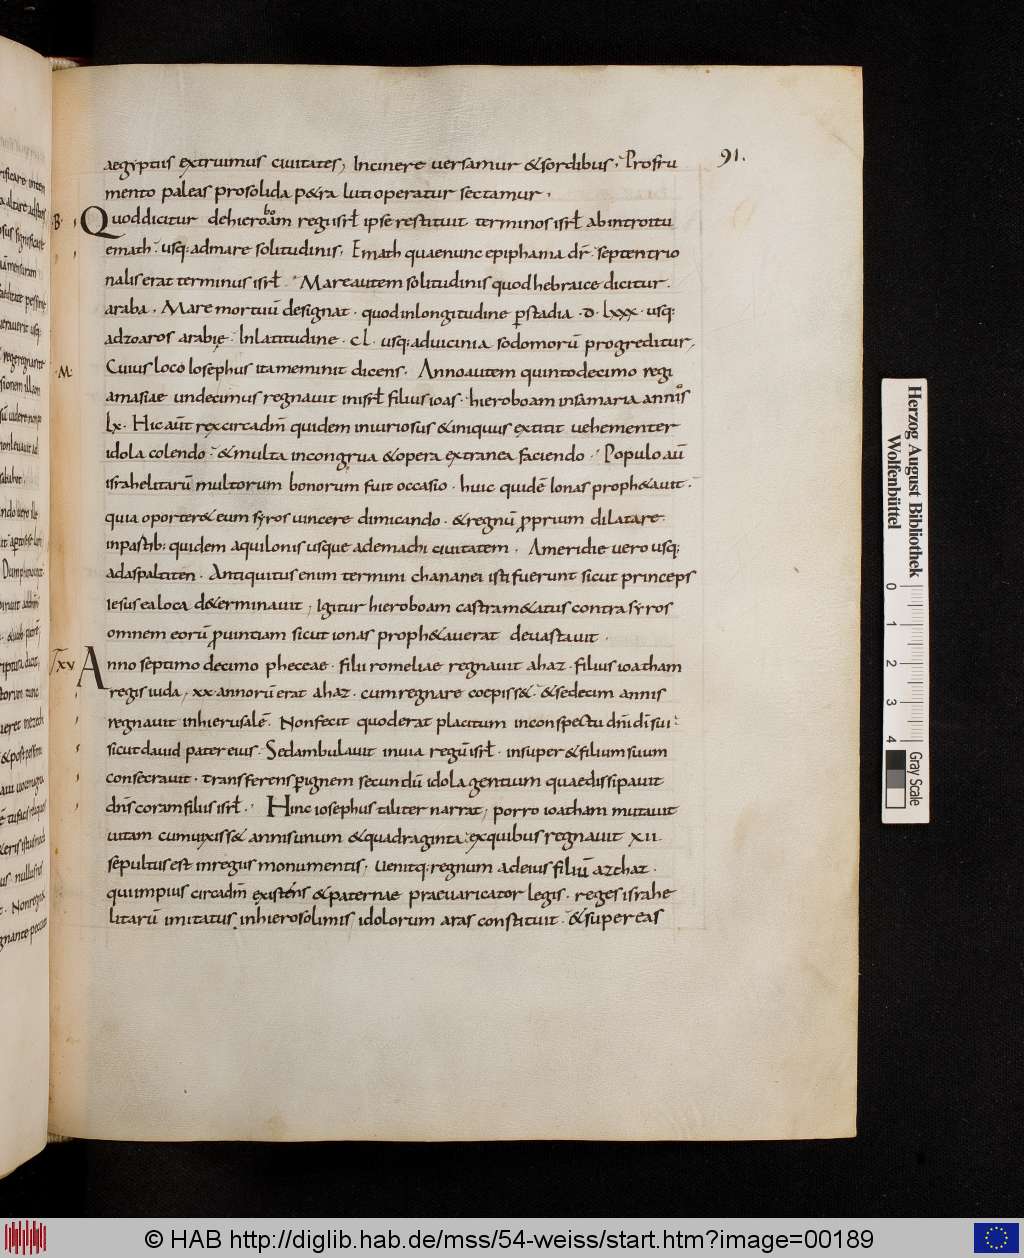 91.
aegyptiis extruimus ciuitates; Incinere uersamur &sordibus; Profru
mento paleas prosolida p&ra luti operatur sectamur.
B
Quoddicitur dehieroboam regeisrł ipse restituit terminos isrł abintroitu
emath. usq: admare solitudinis. Emath quaenunc epiphania dr̄. septentrio
nalis erat terminus isrł. Mareautem solitudinis quod hebraice dicitur.
araba. Mare mortuū designat. quod inlongitudine p̱ stadia .d. lxxx. usq:
adzoaros arabię. Inlatitudine. cl. usq: aduicinia sodomorū progreditur,
M
Cuius loco Iosephus ita meminit dicens. Anno autem quintodecimo regi
amasiae undecimus regnauit inisrł filius ioas. hieroboam insamaria annos
lx. Hic aūt rex circadm̄ quidem iniuriosus &iniquus extitit uehementer
idola colendo. &multa incongrua &opera extranea faciendo. Populo aū
israhelitarū multorum bonorum fuit occasio. huic quidē Ionas proph&auit.
quia oporter& eum syros uincere dimicando. &regnū p̱prium dilatare.
inpastib: quidem aquilonis usque ademachi ciuitatem. Ameridie uero usq:
adaspaltiten. Antiquitus enim termini chananei isti fuerunt sicut princeps
Iesus ea loca d&erminauit; Igitur hieroboam castram&atus contra syros
omnem eorū p̱uintiam sicut ionas proph&auerat deuastauit.
xv
Anno septimo decimo pheceae. filii romeliae regnauit ahaz. filius ioatham
regis iuda; xx annorū erat ahaz. cum regnare coepiss&. &sedecim annis
regnauit inhierusalē. Nonfecit quoderat placitum inconspectu dn̄i dī sui
sicut dauid pater eius. Sedambulauit inuia regū isrł. insuper &filium suum
consecrauit. transferens p̱ignem secundū idola gentium quaedissipauit
dn̄s coram filiis isrł. Hinc iosephus taliter narrat; porro ioatham mutauit
uitam cumuixiss& annis unum &quadraginta. exquibus regnauit xii.
sepultus est inregiis monumentis. Uenitq: regnum adeius filiū azchaz.
quiimpius circadm̄ existens &paternae praeuaricator legis. reges israhe
litarū imitatus inhierosolimis idolorum aras constituit. &super eas
Herzog August Bibliothek
Wolfenbüttel
0 1 2 3 4
Gray Scale
© HAB http://diglib.hab.de/mss/54-weiss/start.htm?image=00189